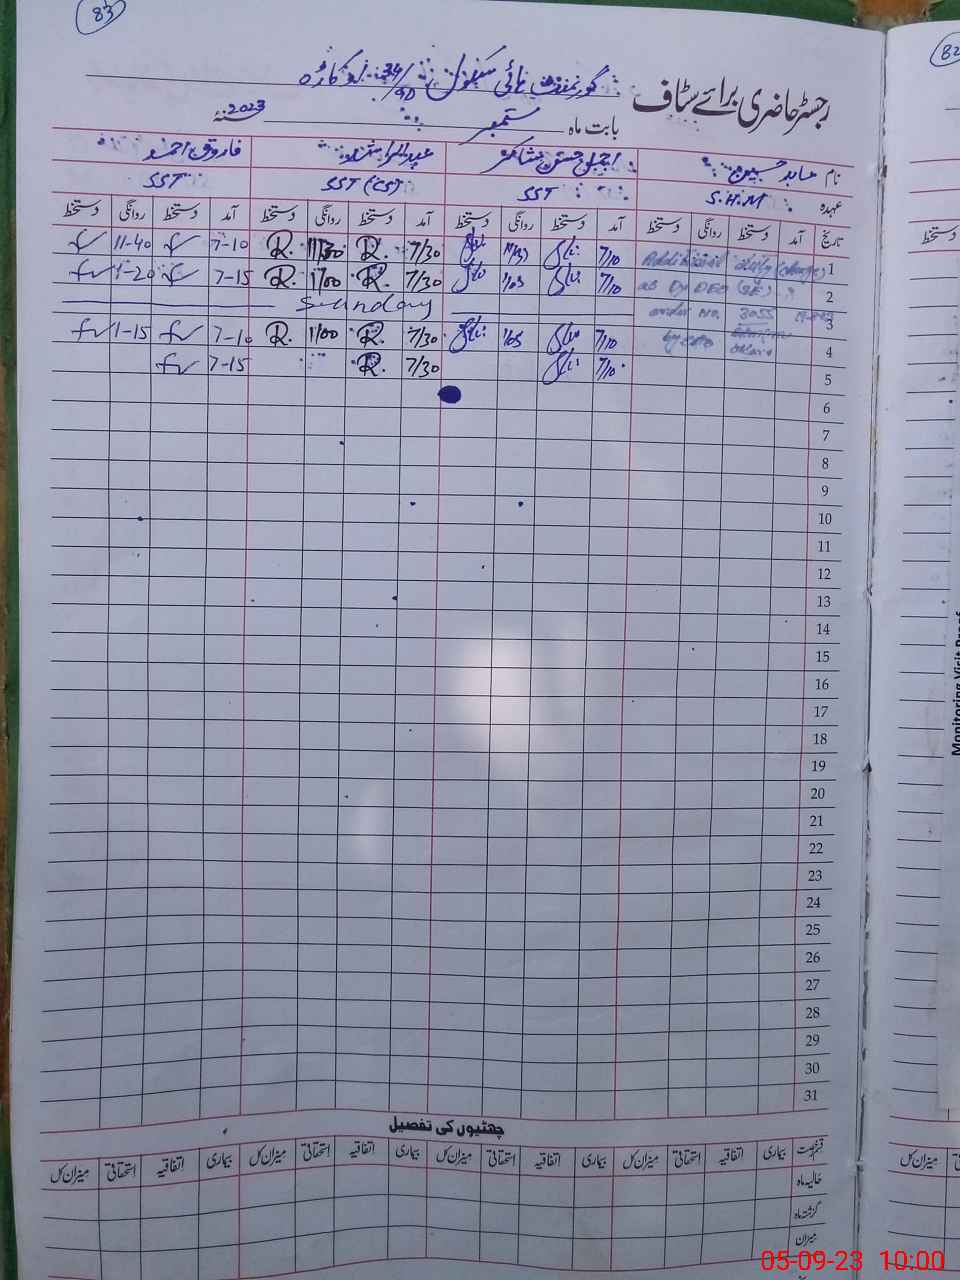 83
82
رجسٹر حاضری برائے سٹاف گورنمنٹ ہائی سکول 34/GD اوکاڑہ
بابت ماہ ستمبر 2023ء
نام عابد حسین اجمل حسن شاکر عبدالراشد فاروق احمد
عہدہ S.H.M SST SST (CS) SST
تاریخ آمد دستخط روانگی دستخط آمد دستخط روانگی دستخط آمد دستخط روانگی دستخط آمد دستخط روانگی دستخط
1 Additional duty (charge) 7/10 7/30 R. 11/30 R. 7-10 11-40
2 as Dy DEO (SE) 7/10 1/03 7/30 R. 1/00 R. 7-15 1-20
3 order No. 3055 Sunday
4 by CEO 7/10 1/05 7/30 R. 11/00 R. 7-10 1-15
5 7/10 7/30 R. 7-15
6
7
8
9
10
11
12
13
14
15
16
17
18
19
20
21
22
23
24
25
26
27
28
29
30
31
چھٹیوں کی تفصیل
بیماری اتفاقیہ استحقاقی میزان کل بیماری اتفاقیہ استحقاقی میزان کل بیماری اتفاقیہ استحقاقی میزان کل بیماری اتفاقیہ استحقاقی میزان کل
حالیہ ماہ
گزشتہ ماہ
میزان
دستخط
میزان کل
Monitoring Visit Proof
05-09-23 10:00